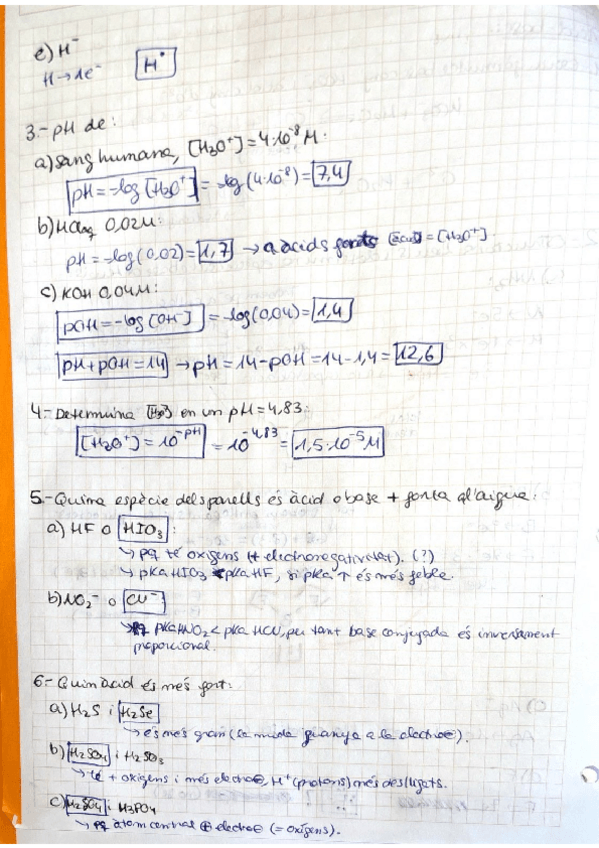 e) H⁻
H→1e⁻ H•
3.- pH de:
a) Sang humana, [H₃O⁺] = 4·10⁻⁸ M:
pH = -log [H₃O⁺] = -log (4·10⁻⁸) = 7,4
b) HClaq 0,02M:
pH = -log (0,02) = 1,7 → àcids forts [àcid] = [H₃O⁺].
c) KOH 0,04M:
pOH = -log [OH⁻] = -log (0,04) = 1,4
pH + pOH = 14 → pH = 14 - pOH = 14 - 1,4 = 12,6
4.- Determina [H₃O⁺] en un pH = 4,83:
[H₃O⁺] = 10^-pH = 10^-4,83 = 1,5·10⁻⁵ M
5.- Quina espècie dels parells és àcid o base + forta a l'aigua:
a) HF o HIO₃:
↳ pq té oxígens (+ electronegativitat). (?)
↳ pKa HIO₃ < pKa HF, si pKa ↑ és més feble.
b) NO₂⁻ o CN⁻
↳ pKa HNO₂ < pKa HCN, per tant base conjugada és inversament
proporcional.
6.- Quin àcid és més fort:
a) H₂S i H₂Se
↳ és més gran (la mida guanya a la electro⊖).
b) H₂SO₄ i H₂SO₃
↳ té + oxígens i més electro⊖, H⁺ (protons) més deslligats.
c) H₂SO₄ i H₃PO₄
↳ pq àtom central ⊕ electro⊖ (= oxígens).